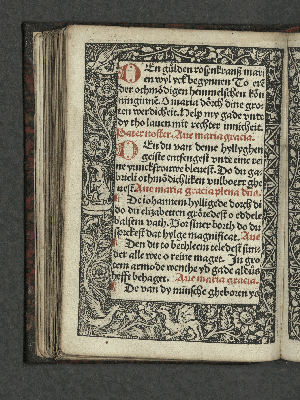 DEn gülden rosenkrantz mari
en wyl yck begynnen To eñ
der othmödigen hemmelschen kön
ninginnē. O maria dörch dine gro-
ten werdicheit. Help my gade vnde
dy tho lauen mit rechter innicheit.
Pater noster. Aue maria gracia.
DEn du van deme hyllyghen
geiste entfengest vnde eine rei
ne yunckfrouwe bleuest. Do du ga-
brieli othmödichliken vulboert ghe
uest Aue maria gracia plena dns.
De iohannem hylligede dorch di
do du elizabeten grötedest o eddele
balsem vath. Vor siner borth do du
sprekest dat hylge magnificat. Aue
Den du to bethleem teledest sun-
der alle wee o reine maget. In gro
tem armode wenthe yd gade aldus
hefft behaget. Aue maria gracia.
De van dy minsche gheboren ys